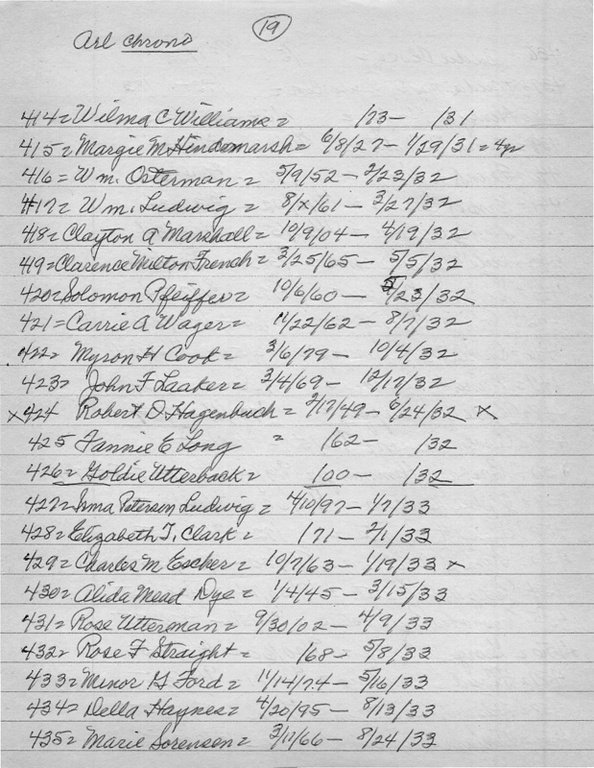 19
Arl chrono
414 = Wilma C Williams = /73 - /31
415 = Margie M Hindemarsh = 6/8/27 - 1/29/31 = 4yr
416 = Wm. Osterman = 5/9/52 - 2/23/32
417 = Wm. Ludwig = 8/x/61 - 3/27/32
418 = Clayton A Marshall = 10/9/04 - 4/19/32
419 = Clarence Milton French = 3/25/65 - 5/5/32
420 = Solomon Pfeiffer = 10/6/60 - 5/23/32
421 = Carrie A Wager = 11/22/62 - 8/7/32
422 = Myron H Cook = 3/6/79 - 10/4/32
423 = John F Laaker = 3/4/69 - 12/17/32
x 424 Robert D Hagenbuch = 2/17/49 - 6/24/32 x
425 Fannie E Long = /62 - /32
426 = Goldie Utterback = /00 - /32
427 = Irma Petersen Ludwig = 4/10/97 - 1/7/33
428 = Elizabeth T. Clark = /71 - 2/1/33
429 = Charles M Escher = 10/7/63 - 1/19/33 x
430 = Alida Mead Dye = 1/4/45 - 3/15/33
431 = Rose Utterman = 9/30/02 - 4/9/33
432 = Rose F Straight = /68 - 5/8/33
433 = Minor G Ford = 11/14/74 - 5/16/33
434 = Della Haynes = 4/20/95 - 8/13/33
435 = Marie Sorensen = 3/11/66 - 8/24/33